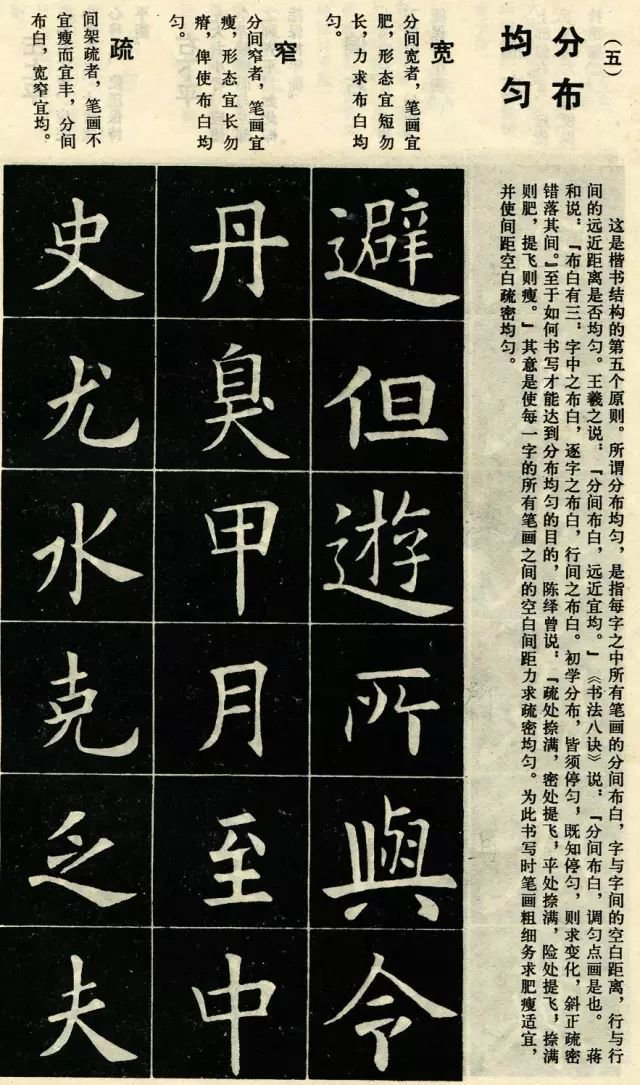 (五)
分布
均匀
这是楷书结构的第五个原则。所谓分布均匀,是指每字之中所有笔画的分间布白,字与字间的空白距离,行与行
间的远近距离是否均匀。王羲之说:『分间布白,远近宜均。』《书法八诀》说:『分间布白,调匀点画是也。 蒋
和说:『布白有三:字中之布白,逐字之布白,行间之布白。初学分布,皆须停匀,既知停匀,则求变化,斜正疏密
错落其间。』至于如何书写才能达到分布均匀的目的,陈绎曾说:『疏处捺满,密处提飞,平处捺满,险处提飞,捺满
则肥,提飞则瘦。』其意是使每一字的所有笔画之间的空白间距力求疏密均匀。为此书写时笔画粗细务求肥瘦适宜,
并使间距空白疏密均匀。
宽
分间宽者,笔画宜
肥,形态宜短勿
长,力求布白均
匀。
避但遊所與令
窄
分间窄者,笔画宜
瘦,形态宜长勿
瘠,俾使布白均
匀。
丹臭甲月至中
疏
间架疏者,笔画不
宜瘦而宜丰,分间
布白,宽窄宜均。
史尤水克乏夫